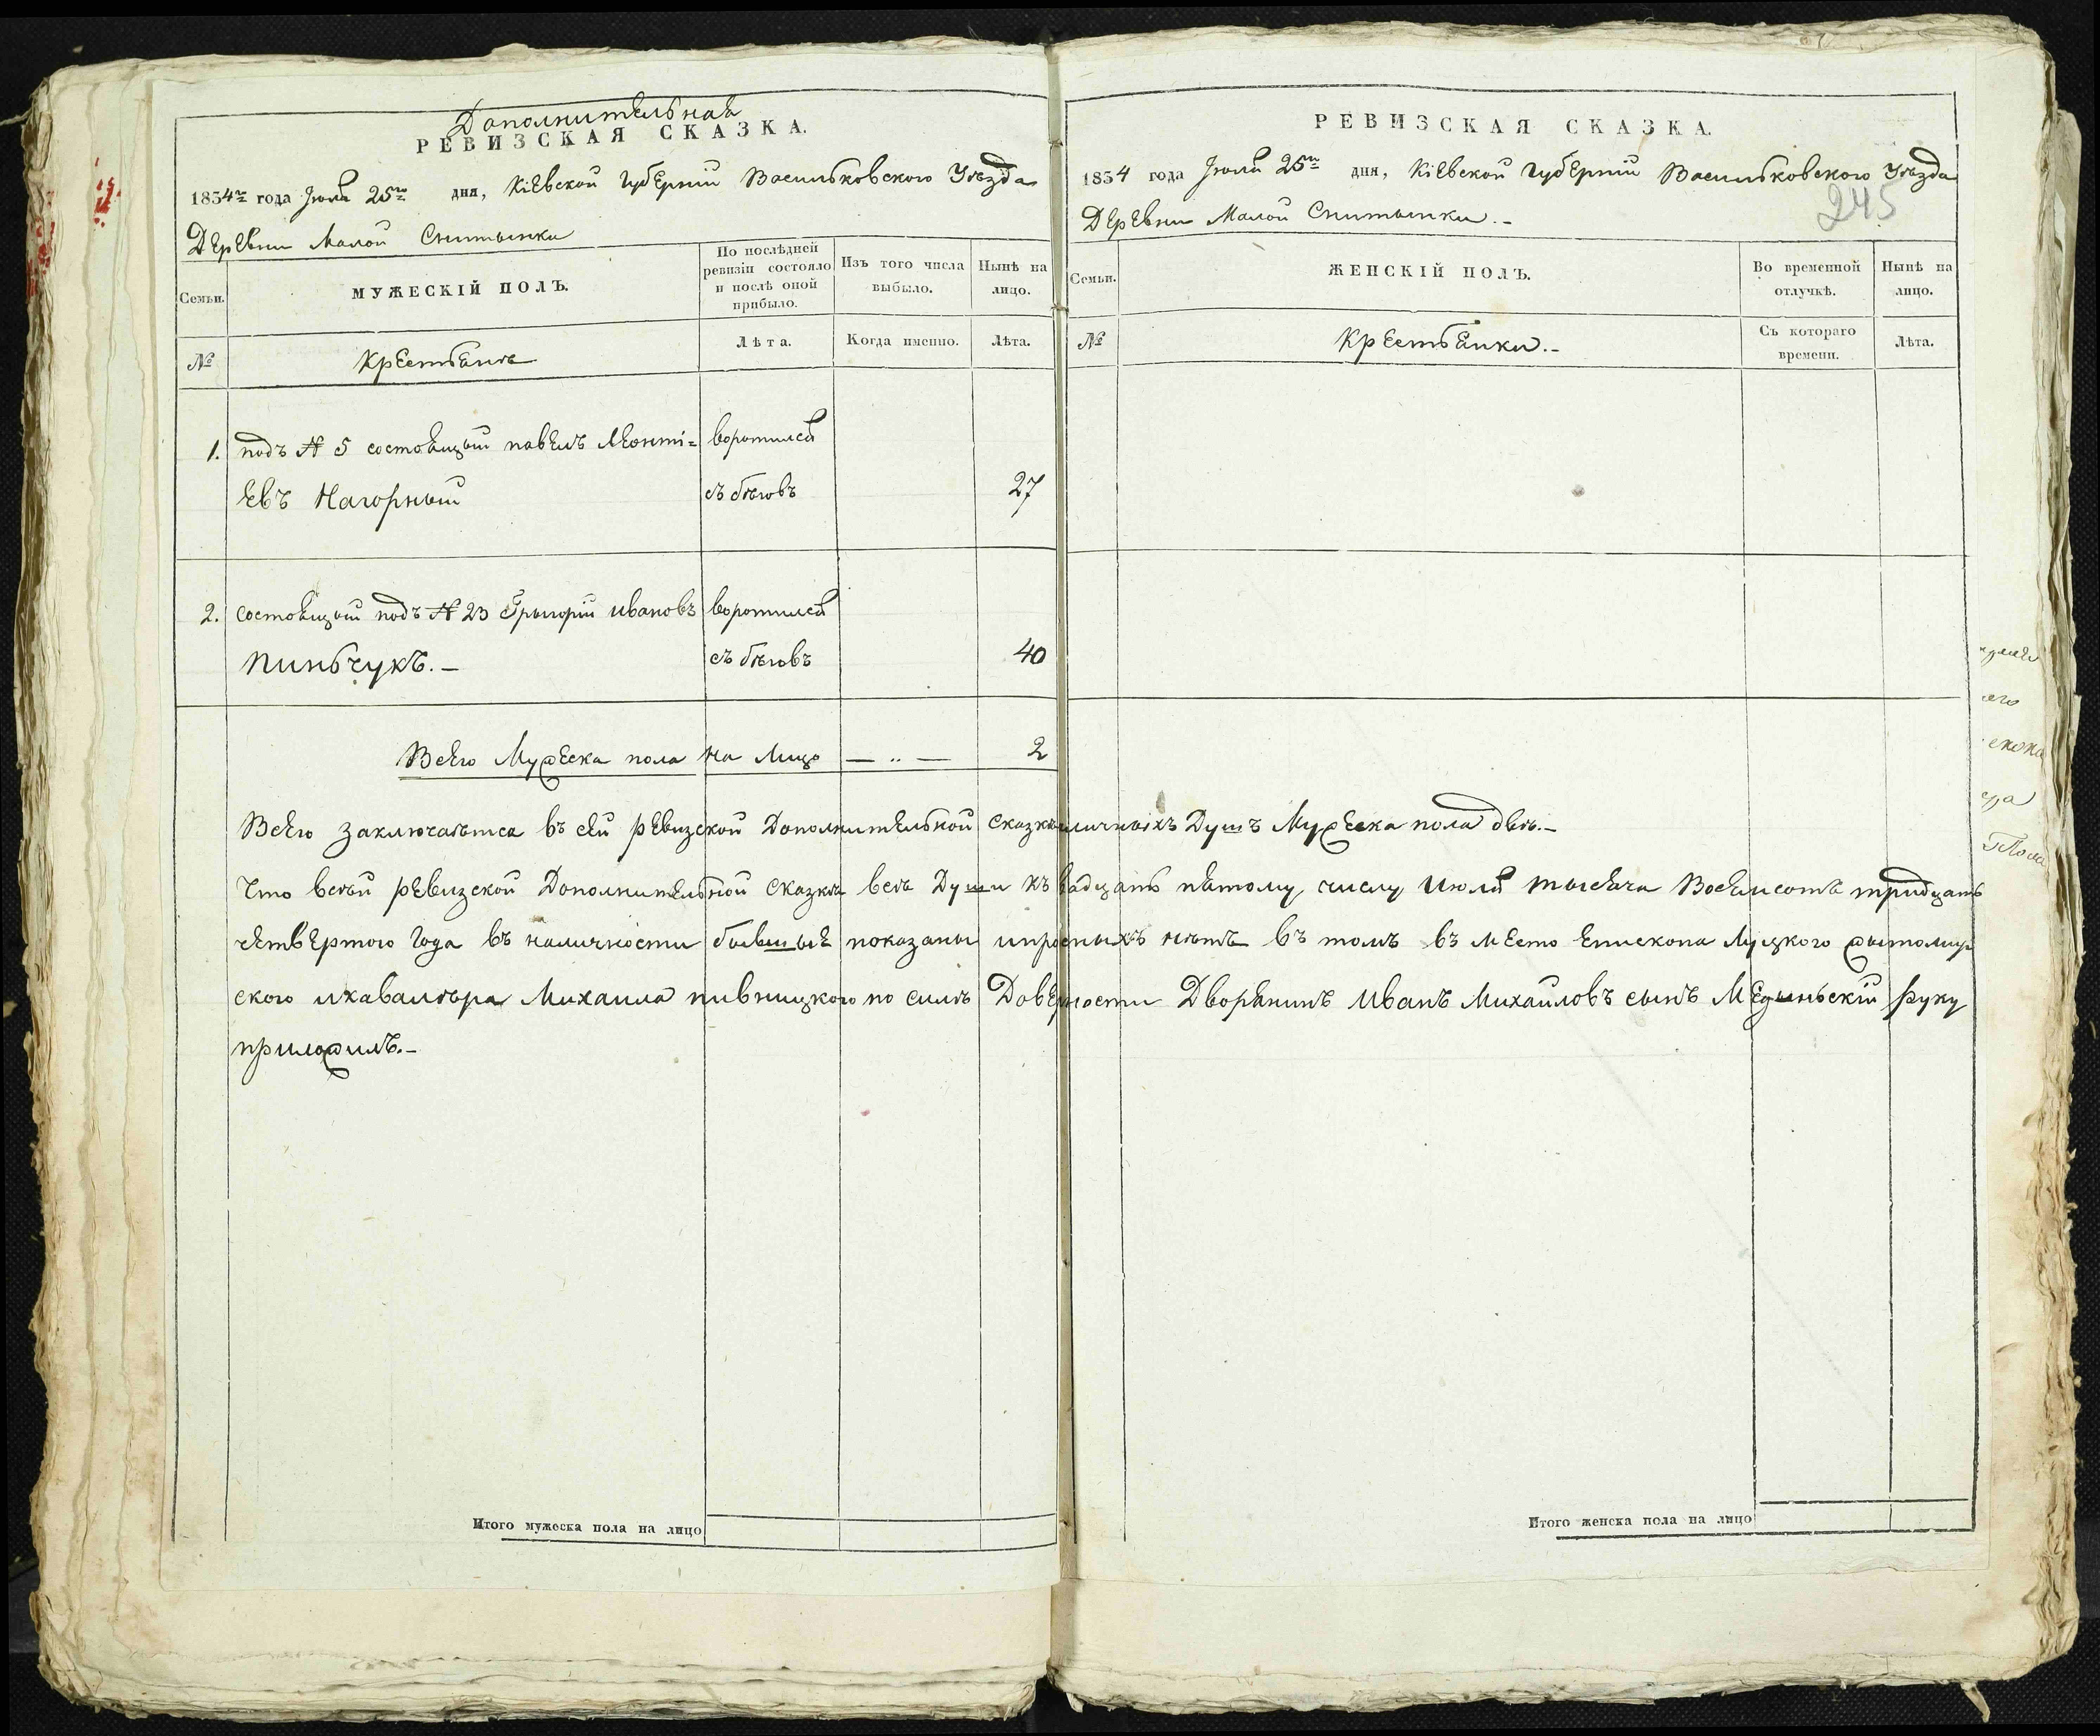 Дополнительная
РЕВИЗСКАЯ СКАЗКА.
1834го года Июля 25го дня, Кіевской губерніи Васильковского Уѣзда
Деревни Малой Снитынки
Семьи.
МУЖЕСКІЙ ПОЛЪ.
По послѣдней ревизіи состояло и послѣ оной прибыло.
Изъ того числа выбыло.
Нынѣ на лицо.
№
Крестьянѣ
Лѣта.
Когда именно.
Лѣта.
1. подъ № 5 состоящый павелъ Леонті= воротился
евъ Нагорный съ бѣговъ 27
2. состоящый подъ № 23 Грыгорій ивановъ воротился
Пиньчукъ.- съ бѣговъ 40
Всего Мужеска пола на Лицо — „ — 2
РЕВИЗСКАЯ СКАЗКА.
1834 года Июля 25го дня, Кіевской губерніи Васильковского Уѣзда
245
Деревни Малой Снитынки.-
Семьи.
ЖЕНСКІЙ ПОЛЪ.
Во временной отлучкѣ.
Нынѣ на лицо.
№
Крестьянки.-
Съ котораго времени.
Лѣта.
Всего заключаѣтся въ сей ревизской Дополнительной сказкѣ личныхъ Душъ Мужеска пола двѣ.-
Что всѣй ревизской Дополнительной Сказкѣ всѣ Души къ вадцать пятому числу Июля тысяча Восемсотъ тридцать
четвертого Года въ наличности бывшые показаны ипрописныхъ нѣтъ въ томъ въ место Епископа Луцкого жытомир
ского икавалѣра Михаила пивницкого по силѣ Доверности Дворянинъ Иванъ Михайловъ сынъ Медыньскій руку
приложилъ.-
Итого мужеска пола на лицо
Итого женска пола на лицо